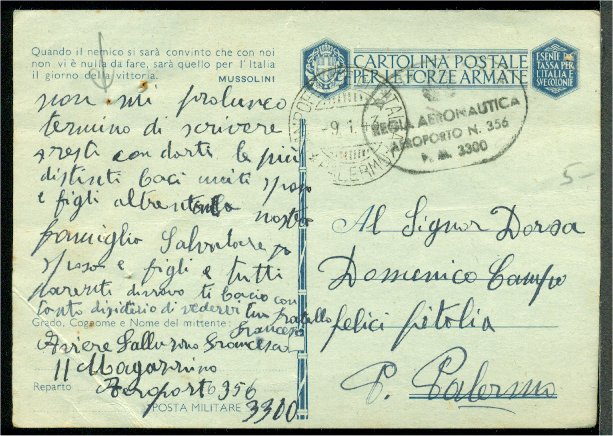 Quando il nemico si sarà convinto che con noi
non vi è nulla da fare, sarà quello per l'Italia
il giorno della vittoria.
MUSSOLINI
non mi prolunco
termino di scrivere
resti con darti le più
distinti baci uniti sposo
e figli
nostra
famiglia Salvatore
sposo e figli e tutti
parenti di nuovo ti bacio con
tanto disidesio di vedervi tuo fratello
Francesco
Grado, Cognome e Nome del mittente
Aviere Francesco
11 Magazzino
Reparto Aeroporto 356
POSTA MILITARE 3300
CARTOLINA POSTALE
PER LE FORZE ARMATE
ESENTE
TASSA PER
L'ITALIA E
SVE COLONIE
9.1.43
PALERMO
REGIA AERONAUTICA
AEROPORTO N. 356
P. M. 3300
5-
Al Signor Dorsa
Domenico Campo
felici fitolia
P. Palermo